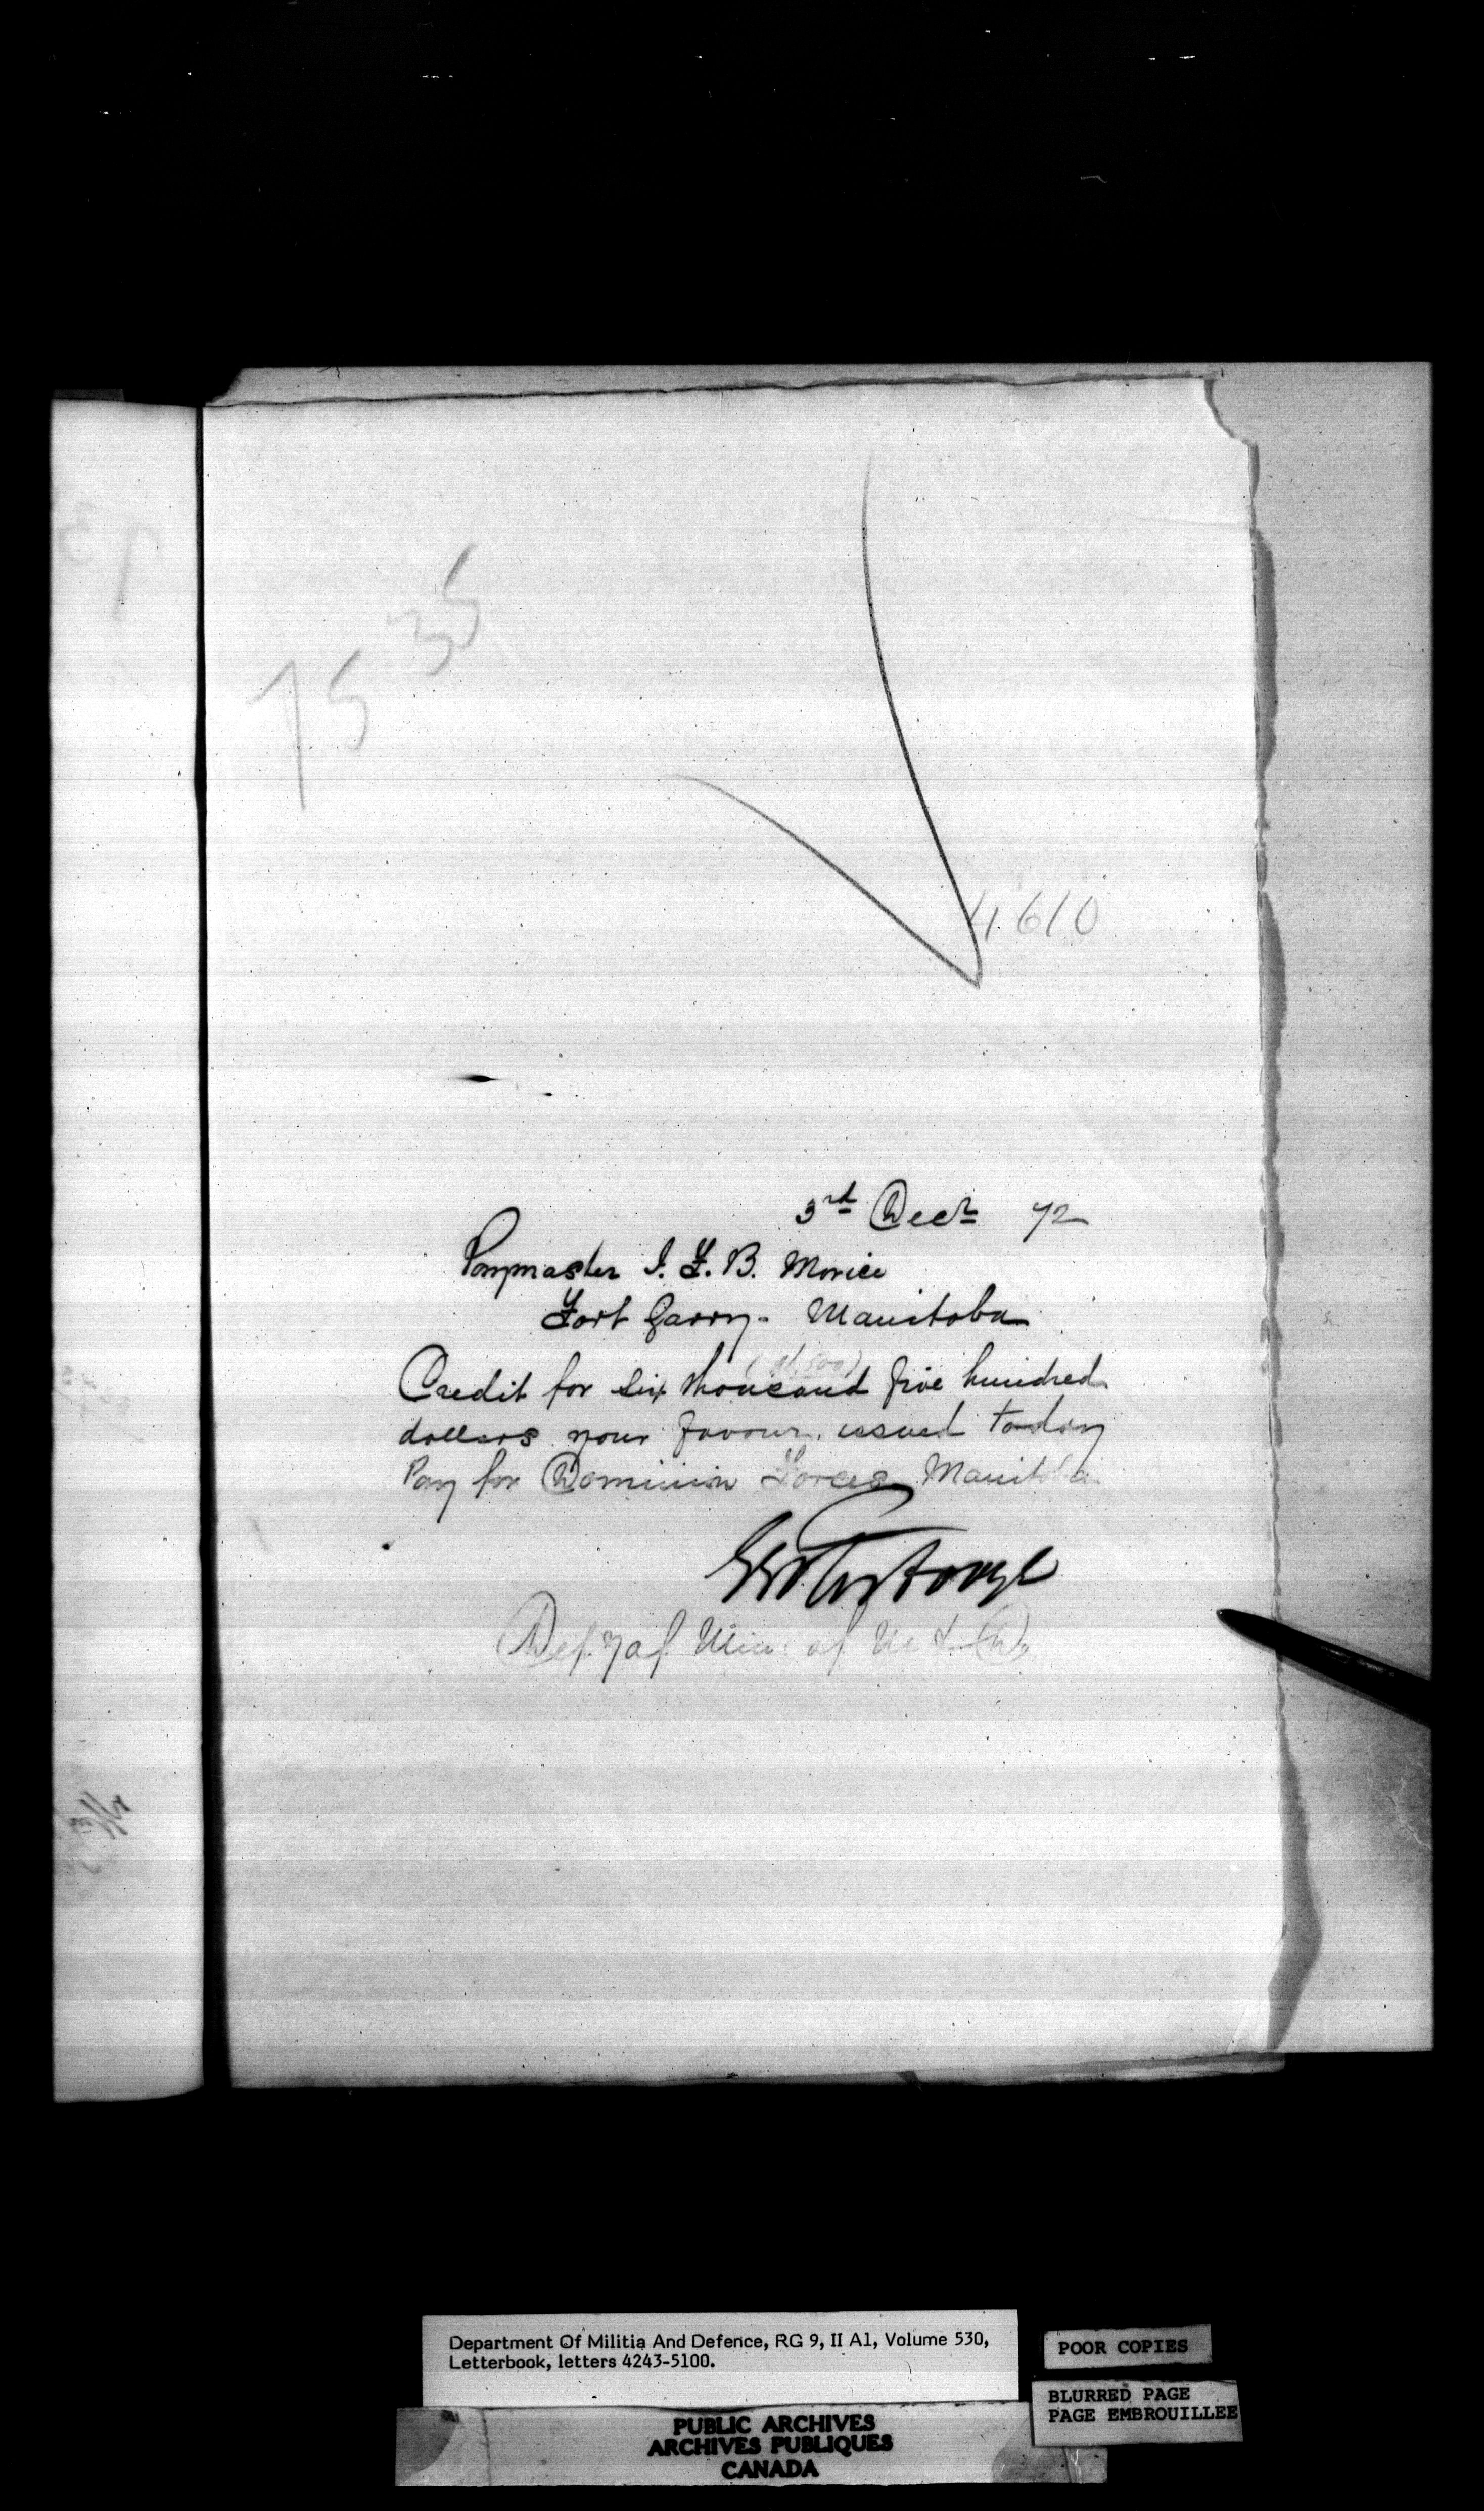 7535
4610
3rd Decr 72
Paymaster J. F. B. Morice
Fort Garry - Manitoba
Credit for six thousand five hundred
dollars your favour issued today
Pay for Dominion Forces Manitoba
Dep. of Min. of M & D
Department Of Militia And Defence, RG 9, II A1, Volume 530,
Letterbook, letters 4243-5100.
POOR COPIES
BLURRED PAGE
PAGE EMBROUILLEE
PUBLIC ARCHIVES
ARCHIVES PUBLIQUES
CANADA